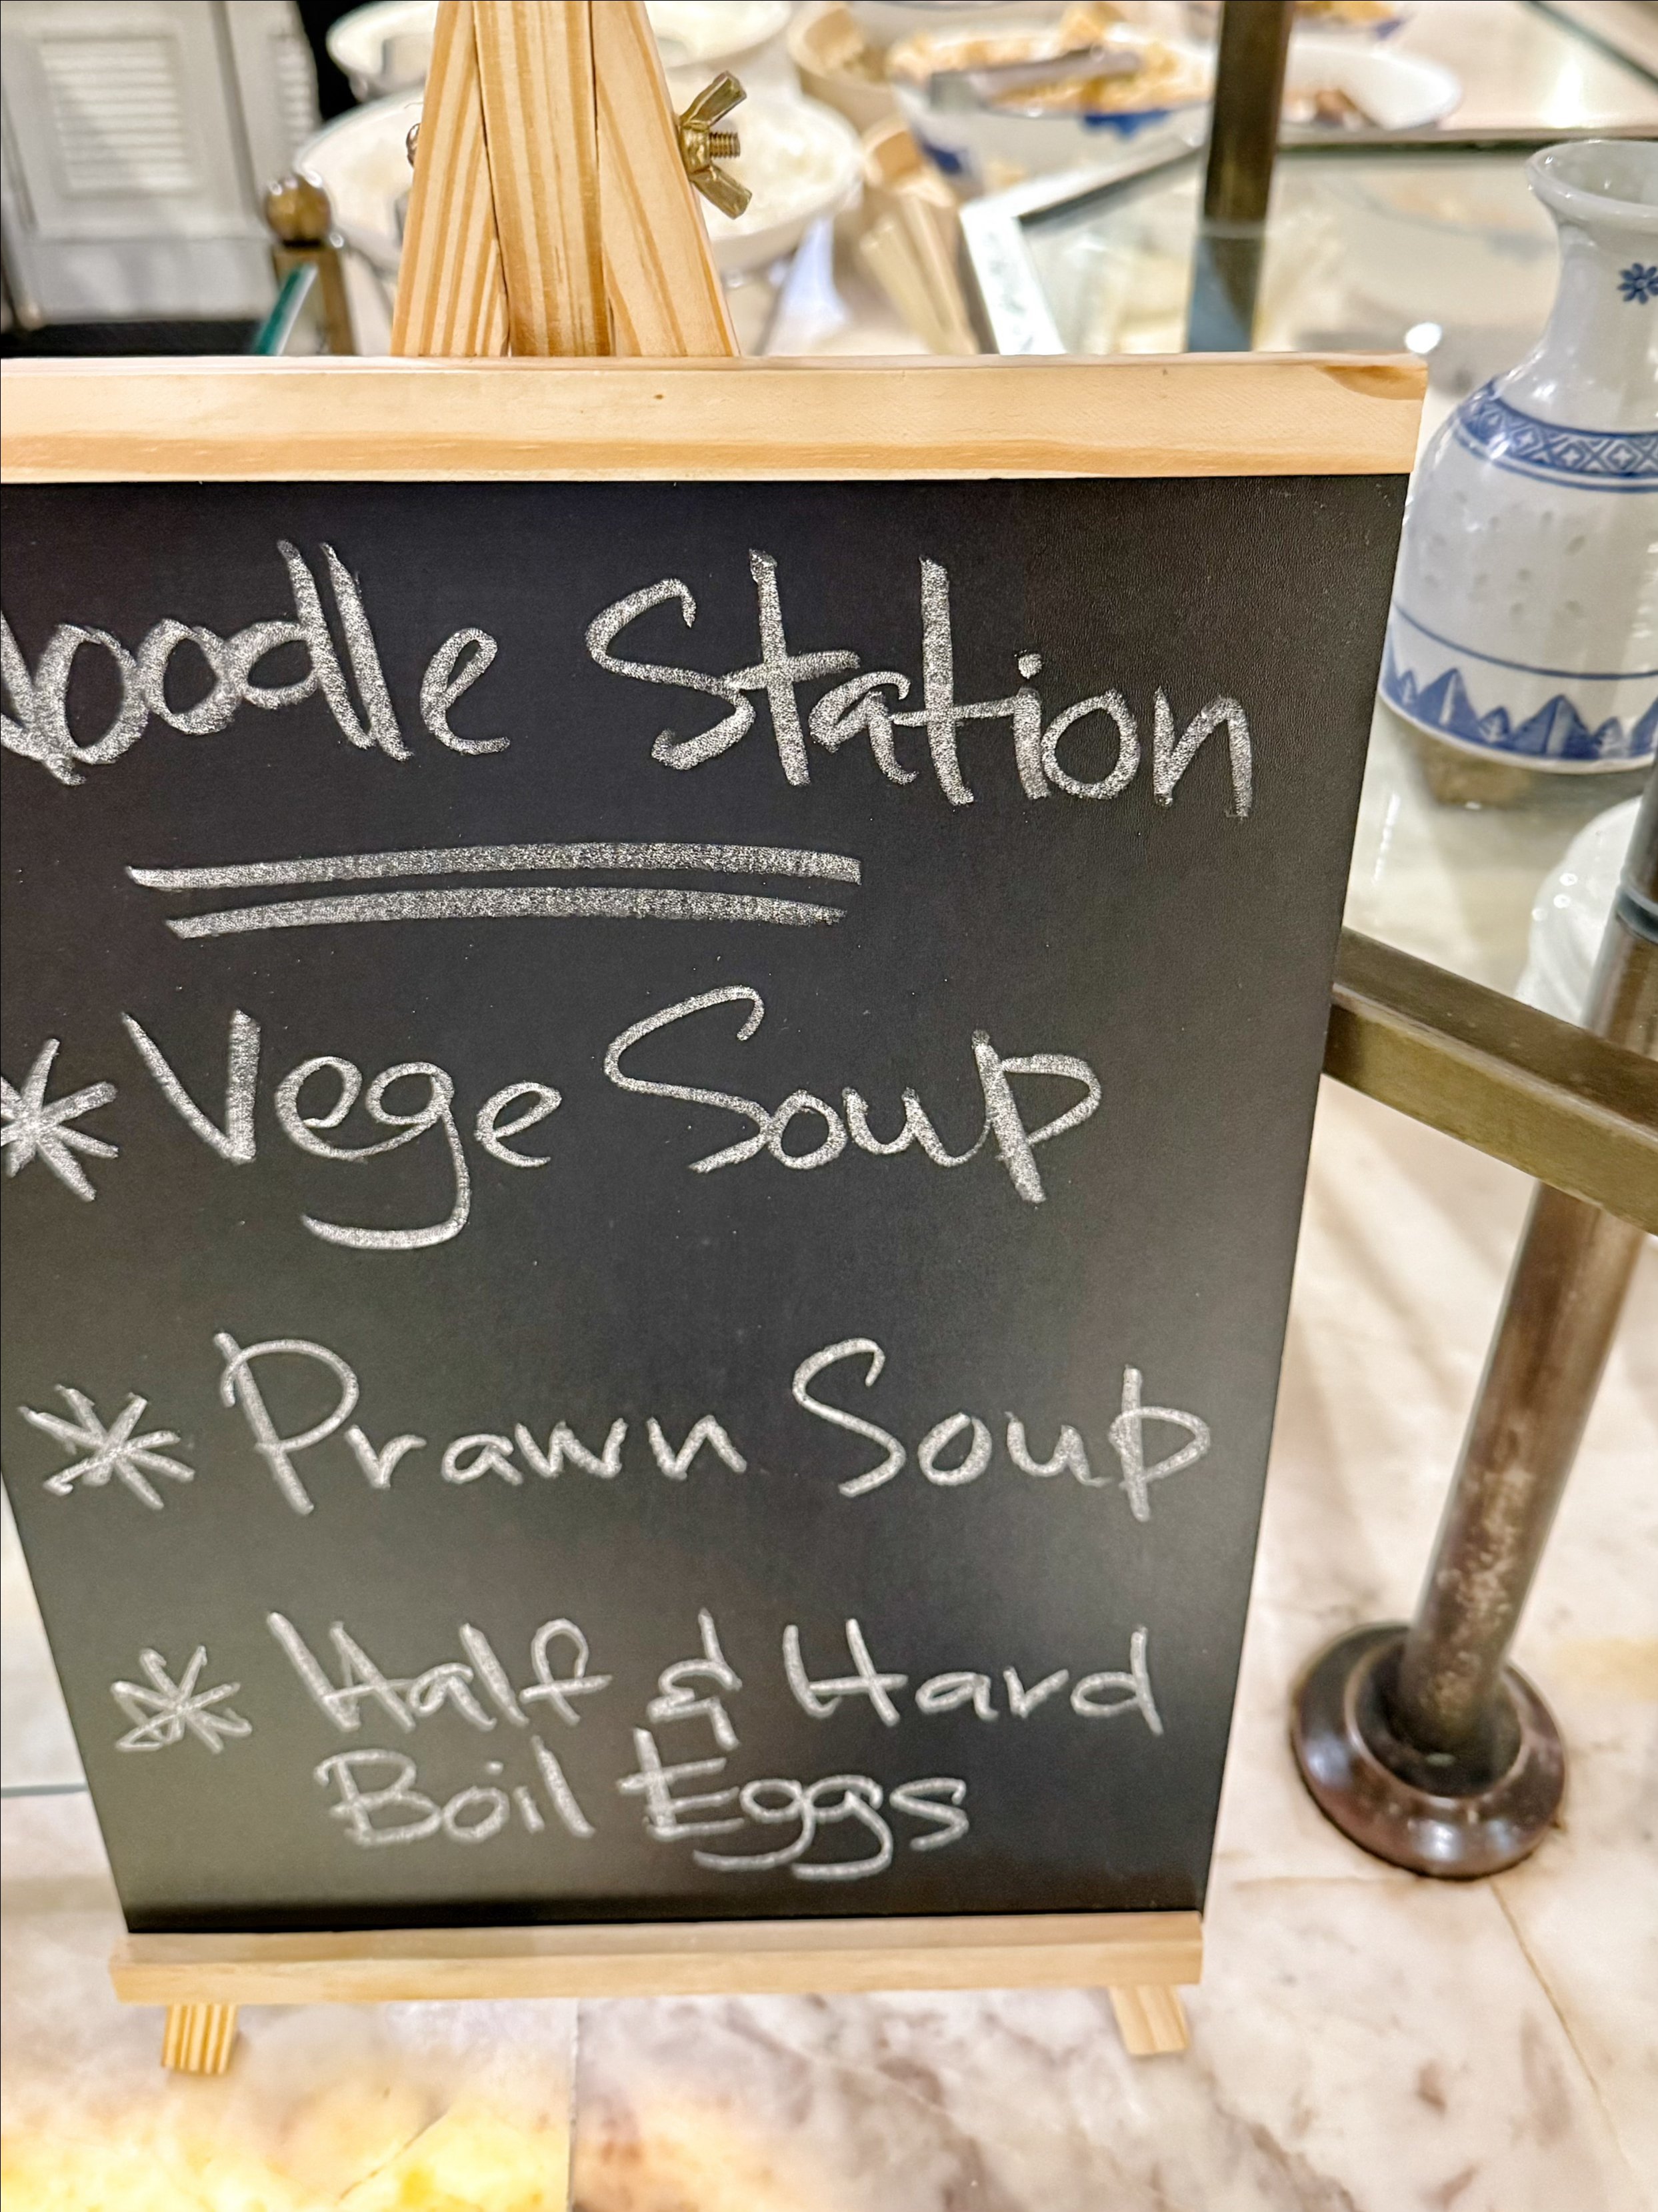 Noodle Station
* Vege Soup
* Prawn Soup
* Half & Hard
Boil Eggs